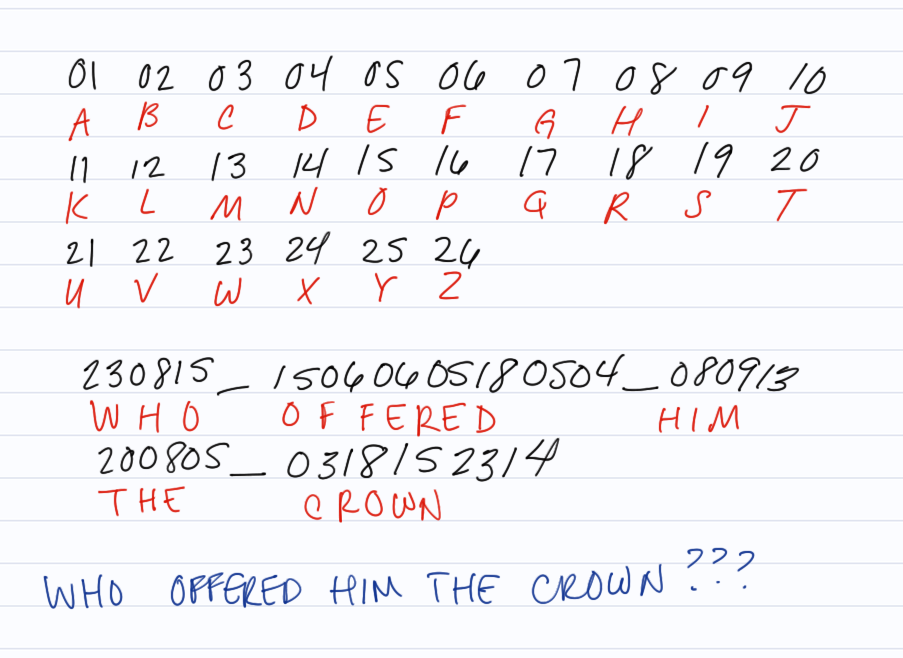 01 02 03 04 05 06 07 08 09 10
A B C D E F G H I J
11 12 13 14 15 16 17 18 19 20
K L M N O P Q R S T
21 22 23 24 25 26
U V W X Y Z
230815_ 15060605180504_080913
WHO OFFERED HIM
200805_ 0318152314
THE CROWN
WHO OFFERED HIM THE CROWN ???